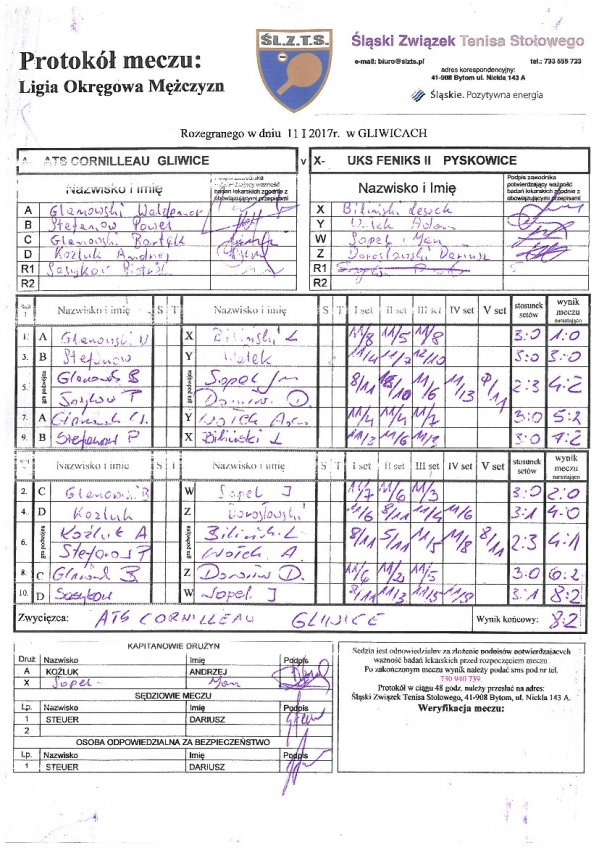 Protokół meczu:
Ligia Okręgowa Mężczyzn
ŚL.Z.T.S.
Śląski Związek Tenisa Stołowego
e-mail: biuro@slzts.pl tel.: 733 555 723
adres korespondencyjny:
41-908 Bytom ul. Nickla 143 A
Śląskie. Pozytywna energia
Rozegranego w dniu 11 I 2017r. w GLIWICACH
A- ATS CORNILLEAU GLIWICE v X- UKS FENIKS II PYSKOWICE
Nazwisko i imię Podpis zawodnika potwierdzający ważność badań lekarskich zgodnie z obowiązującymi przepisami Nazwisko i Imię Podpis zawodnika potwierdzający ważność badań lekarskich zgodnie z obowiązującymi przepisami
A Glanowski Waldemar X Biliński Leszek
B Stefanów Paweł Y Wołek Adam
C Glanowski Bartek W Sopel Jan
D Koźluk Andrzej Z Dorosławski Dariusz
R1 Sasykow Piotr R1
R2 R2
Nazwisko i imię S T Nazwisko i imię S T I set II set III set IV set V set stosunek setów wynik meczu narastająco
1. A Glanowski W X Biliński L 11/8 11/5 11/8 3:0 1:0
3. B Stefanów Y Wołek 11/4 11/7 12/10 3:0 3:0
5. gra podwójna Glanowski B Sopel J 8/11 11/6 11/13 2:3 4:2
Sasykow P
7. A Y Wołek 11/4 11/4 11/7 3:0 5:2
9. B Stefanów P X Biliński L 11/3 11/6 11/3 3:0 7:2
Nazwisko i imię S T Nazwisko i imię S T I set II set III set IV set V set stosunek setów wynik meczu narastająco
2. C Glanowski B W Sopel J 11/7 11/6 11/3 3:0 2:0
4. D Koźluk Z Dorosławski 11/6 8/11 11/4 11/6 3:1 4:0
6. gra podwójna Koźluk A Biliński L 8/11 5/11 11/5 11/8 8/11 2:3 4:1
Stefanów P Wołek A.
8. C Glanowski B Z D. 11/6 11/2 11/5 3:0 6:2
10. D Sasykow W Sopel J 8/11 11/3 11/5 11/8 3:1 8:2
Zwycięzca: ATS CORNILLEAU GLIWICE Wynik końcowy: 8:2
KAPITANOWIE DRUŻYN
Druż Nazwisko Imię Podpis
A KOŹLUK ANDRZEJ
X Sopel Jan
SĘDZIOWIE MECZU
Lp. Nazwisko Imię Podpis
1 STEUER DARIUSZ
2
OSOBA ODPOWIEDZIALNA ZA BEZPIECZEŃSTWO
Lp. Nazwisko Imię Podpis
1 STEUER DARIUSZ
Sędzia jest odpowiedzialny za złożenie podpisów potwierdzających
ważność badań lekarskich przed rozpoczęciem meczu
Po zakończonym meczu wynik, należy podać sms pod nr tel.
730 940 739.
Protokół w ciągu 48 godz. należy przesłać na adres:
Śląski Związek Tenisa Stołowego, 41-908 Bytom, ul. Nickla 143 A.
Weryfikacja meczu: